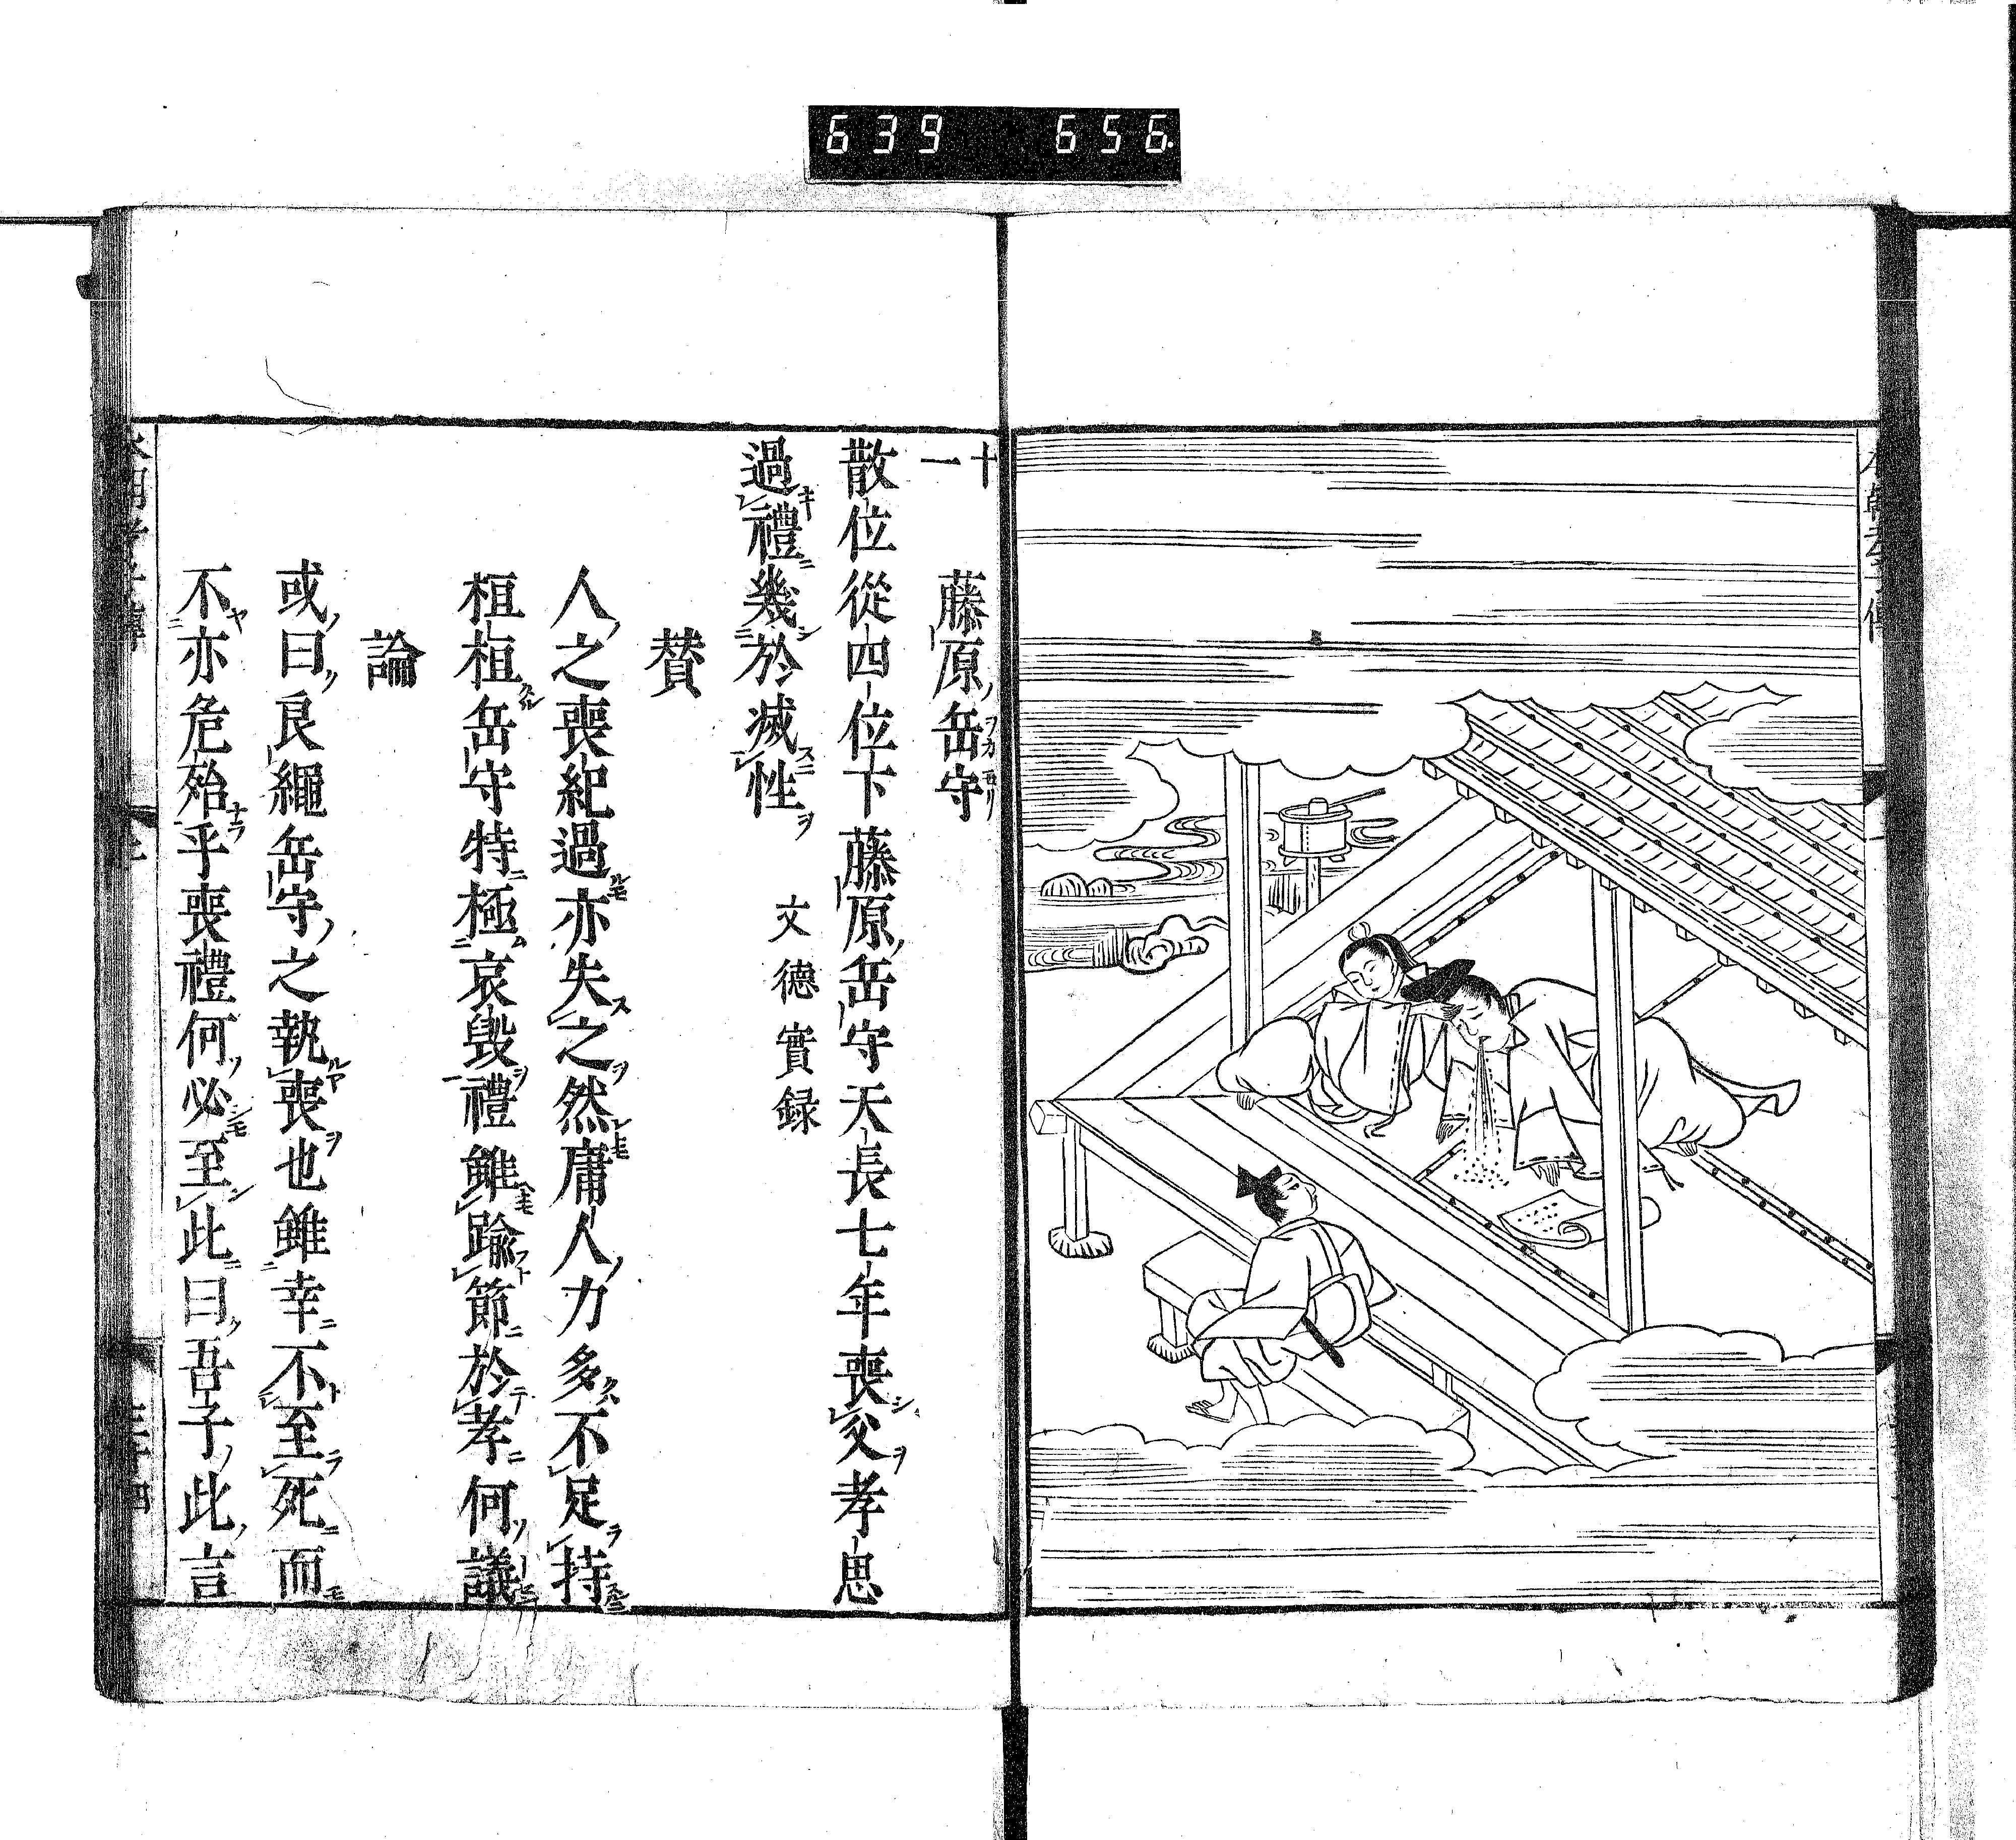 639 656
十一
藤原岳守
散位從四位下藤原岳守天長七年喪父孝思
過禮幾於滅性 文德實録
賛
人之喪紀過亦失之然庸人力多不足持
桓桓岳守特極哀毀禮雖踰節於孝何議
論
或曰良繩岳守之執喪也雖幸不至死而
不亦危殆乎喪禮何必至此曰吾子此言